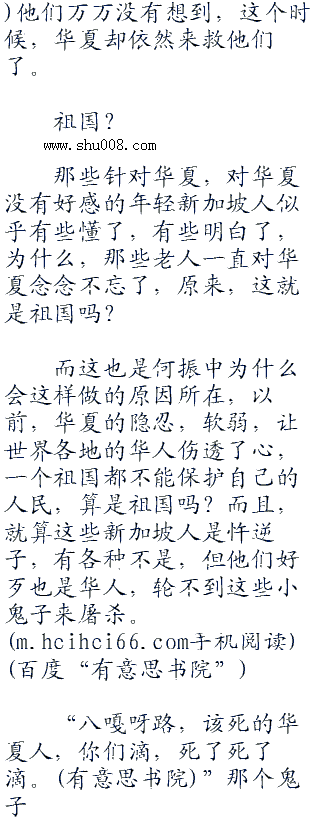 )他们万万没有想到，这个时
候，华夏却依然来救他们
了。
祖国？
www.shu008.com
那些针对华夏，对华夏
没有好感的年轻新加坡人似
乎有些懂了，有些明白了，
为什么，那些老人一直对华
夏念念不忘了，原来，这就
是祖国吗？
而这也是何振中为什么
会这样做的原因所在，以
前，华夏的隐忍，软弱，让
世界各地的华人伤透了心，
一个祖国都不能保护自己的
人民，算是祖国吗？而且，
就算这些新加坡人是忤逆
子，有各种不是，但他们好
歹也是华人，轮不到这些小
鬼子来屠杀。
(m.hcihci66.com手机阅读)
(百度“有意思书院”)
“八嘎呀路，该死的华
夏人，你们滴，死了死了
滴。(有意思书院)”那个鬼
子